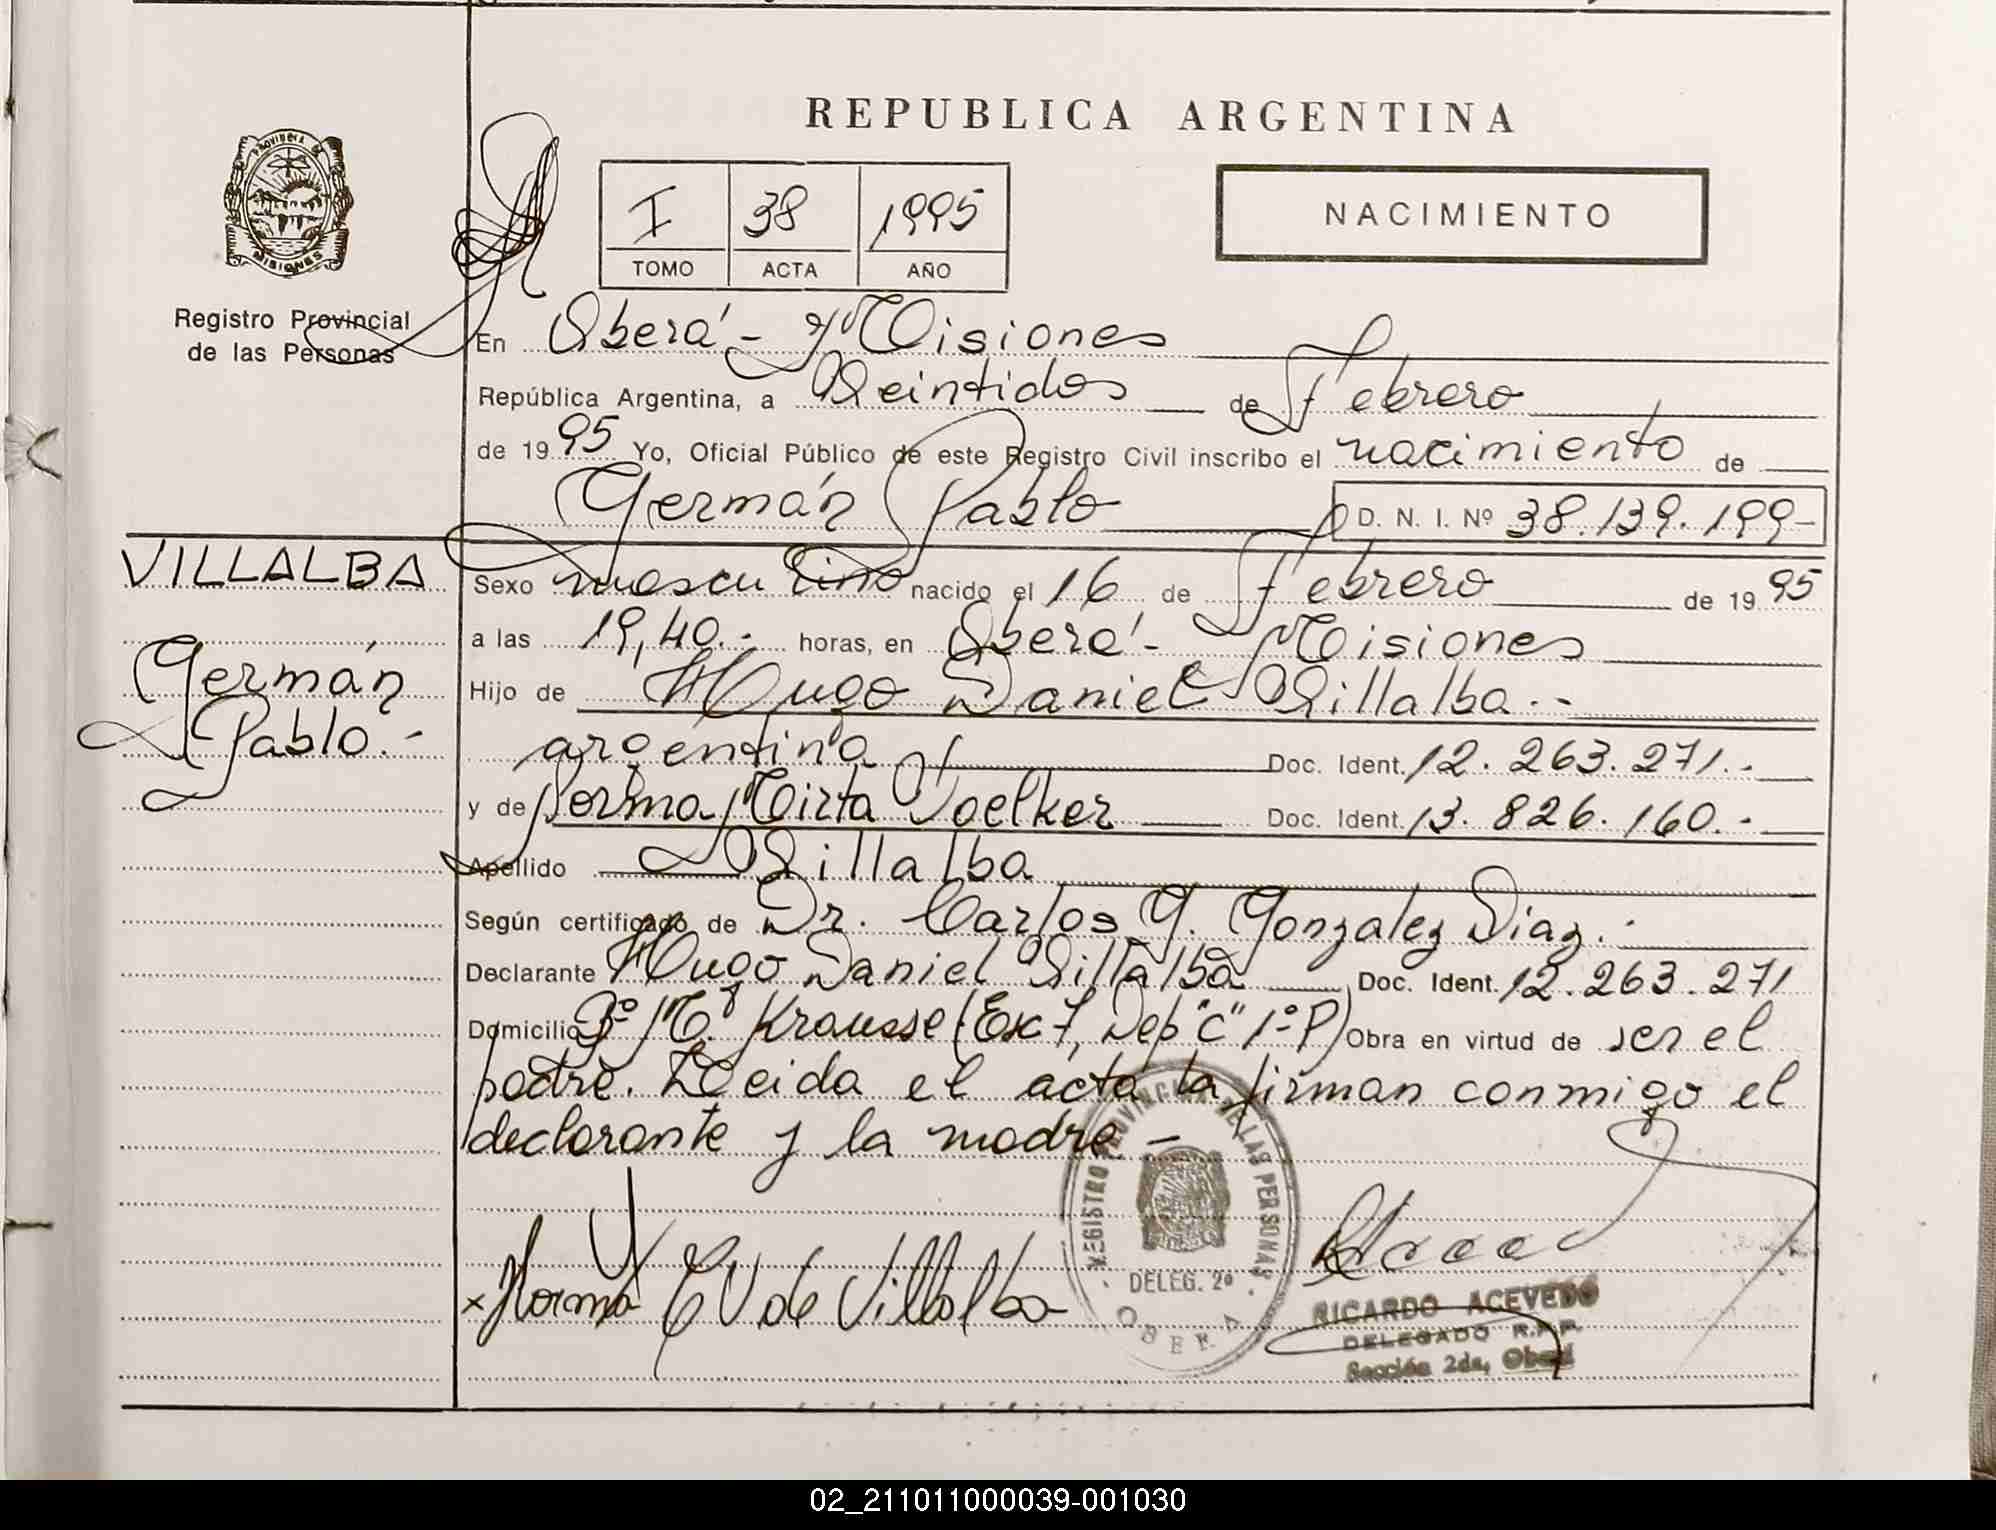 REPUBLICA ARGENTINA
PROVINCIA DE
MISIONES
Registro Provincial
de las Personas
I 38 1995
TOMO ACTA AÑO
NACIMIENTO
En Oberá - Misiones
República Argentina, a Veintidos de Febrero
de 1995 Yo, Oficial Público de este Registro Civil inscribo el nacimiento de
Germán Pablo D. N. I. Nº 38.139.199-
VILLALBA
Germán
Pablo.-
Sexo masculino nacido el 16 de Febrero de 1995
a las 19,40.- horas, en Oberá - Misiones
Hijo de Hugo Daniel Villalba.-
argentino Doc. Ident. 12.263.271.-
y de Norma Mirta Voelker Doc. Ident. 13.826.160.-
Apellido Villalba
Según certificado de Dr. Carlos G. Gonzalez Diaz.-
Declarante Hugo Daniel Villalba Doc. Ident. 12.263.271
Domicilio Bº Mº Krausse (Esc 7, Dep "C" 1º P) Obra en virtud de ser el
padre. Leida el acta la firman conmigo el
declarante y la madre -
REGISTRO PROVINCIAL DE LAS PERSONAS
DELEG. 2º
OBERA
x Norma V de Villalba
RICARDO ACEVEDO
DELEGADO R.P.P.
Sección 2da, Oberá
02_211011000039-001030